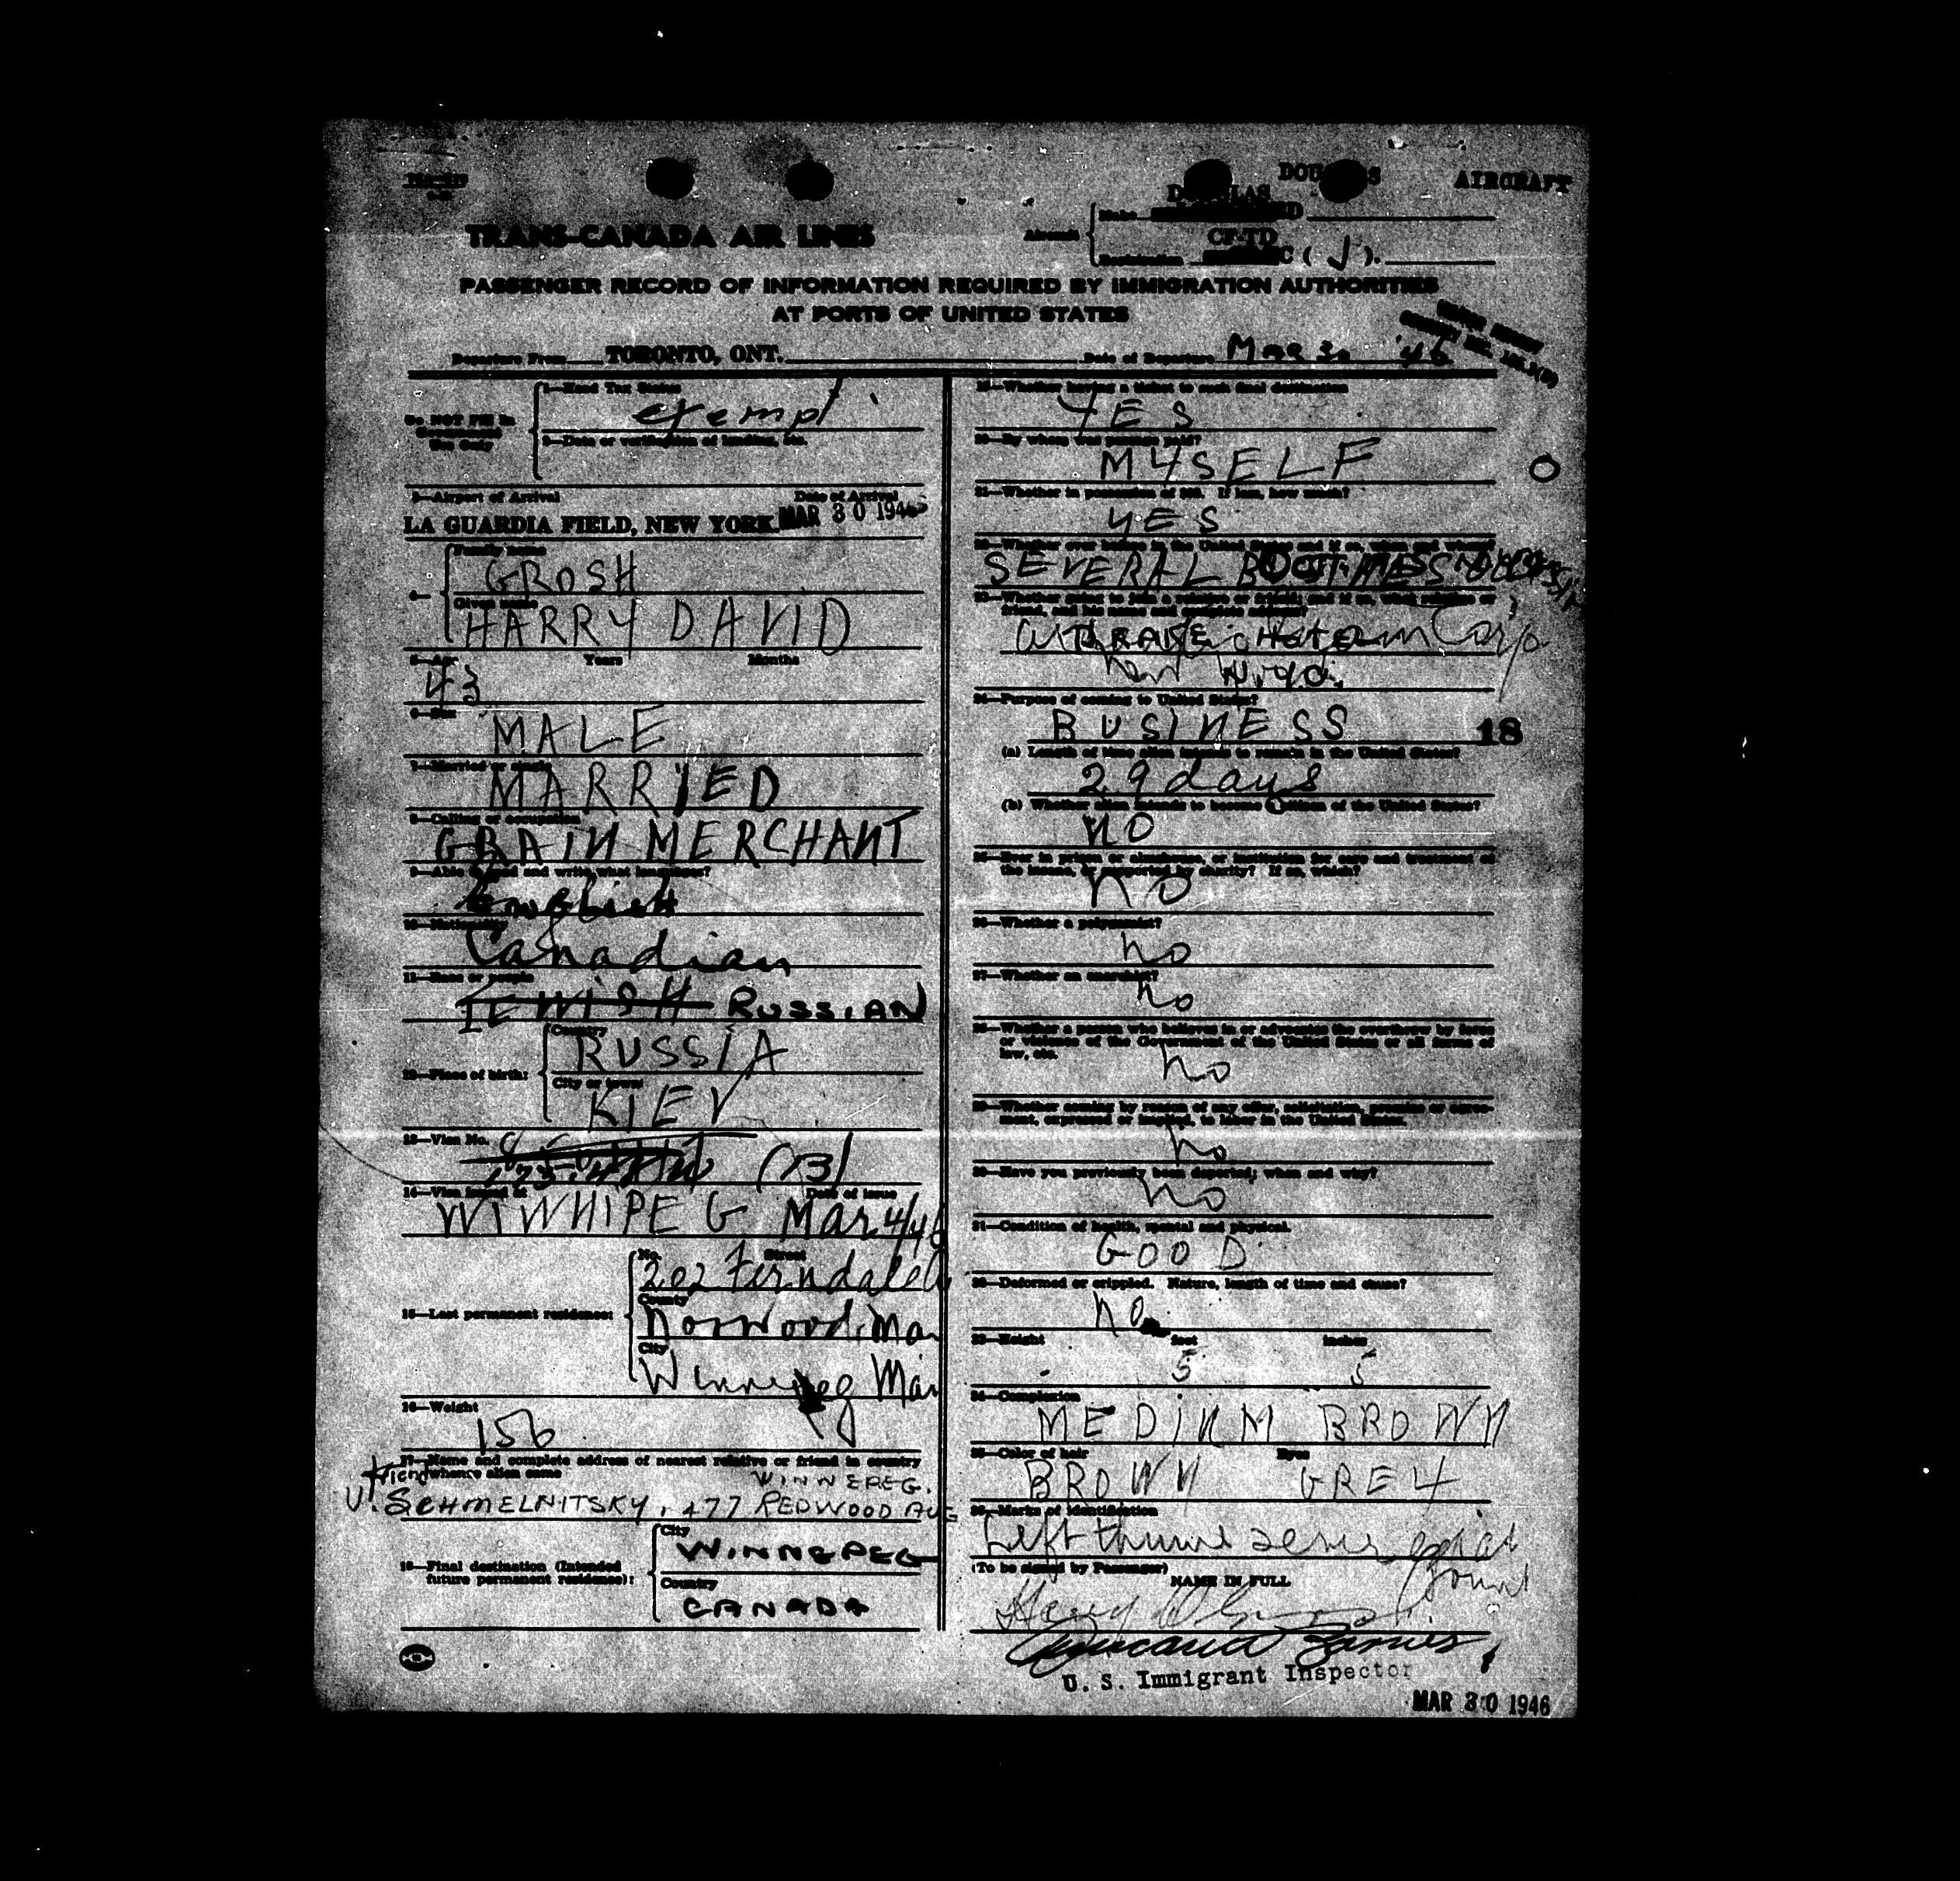 DOUGLAS AIRCRAFT
DOUGLAS
Make
TRANS-CANADA AIR LINES
Aircraft
CF-TD
Registration C ( J ).
PASSENGER RECORD OF INFORMATION REQUIRED BY IMMIGRATION AUTHORITIES
AT PORTS OF UNITED STATES
Departure From TORONTO, ONT. Date of Departure Mar 30 '46
1—Head Tax Status
exempt
Do NOT Fill in
Use Only
2—Date or verification of landing, etc.
3—Airport of Arrival Date of Arrival
LA GUARDIA FIELD, NEW YORK. MAR 30 1946
4— Family name
GROSH
Given name
HARRY DAVID
5—Age Years Months
43
6—Sex
MALE
7—Married or single
MARRIED
8—Calling or occupation
GRAIN MERCHANT
9—Able to read and write, what languages?
English
10—Nationality
Canadian
11—Race or people
JEWISH RUSSIAN
12—Place of birth: Country
RUSSIA
City or town
KIEV
13—Visa No.
(B)
14—Visa issued at Date of issue
WINNIPEG Mar 4/46
15—Last permanent residence: No. Street
202 Ferndale
County
Norwood, Man
City
Winnepeg Man
16—Weight
156
17—Name and complete address of nearest relative or friend in country
whence alien came
WINNEPEG.
V. SCHMELNITSKY, 477 REDWOOD AVE
18—Final destination (Intended
future permanent residence): City
WINNEPEG
Country
CANADA
19—Whether having a ticket to such final destination
YES
20—By whom was passage paid?
MYSELF
21—Whether in possession of $50. If less, how much?
YES
22—Whether ever before in the United States and if so, when and where?
SEVERAL
23—Whether going to join a relative or friend; and if so, what relative or
friend, and his name and complete address?
DRAKE HOTEL Corp
N.Y.C.
24—Purpose of coming to United States?
BUSINESS 18
(a) Length of time alien intends to remain in the United States?
29 days
(b) Whether alien intends to become a citizen of the United States?
NO
25—Ever in prison or almshouse, or institution for care and treatment of
the insane, or supported by charity? If so, which?
NO
26—Whether a polygamist?
no
27—Whether an anarchist?
no
28—Whether a person who believes in or advocates the overthrow by force
or violence of the Government of the United States or all forms of
law, etc.
no
29—Whether coming by reason of any offer, solicitation, promise or agree-
ment, expressed or implied, to labor in the United States.
no
30—Have you previously been deported; when and why?
no
31—Condition of health, mental and physical.
GOOD
32—Deformed or crippled. Nature, length of time and cause?
no
33—Height feet inches
5 5
34—Complexion
MEDIUM BROWN
35—Color of hair Eyes
BROWN GREY
36—Marks of identification
Left thumb
(To be signed by Passenger) NAME IN FULL
U. S. Immigrant Inspector
MAR 30 1946